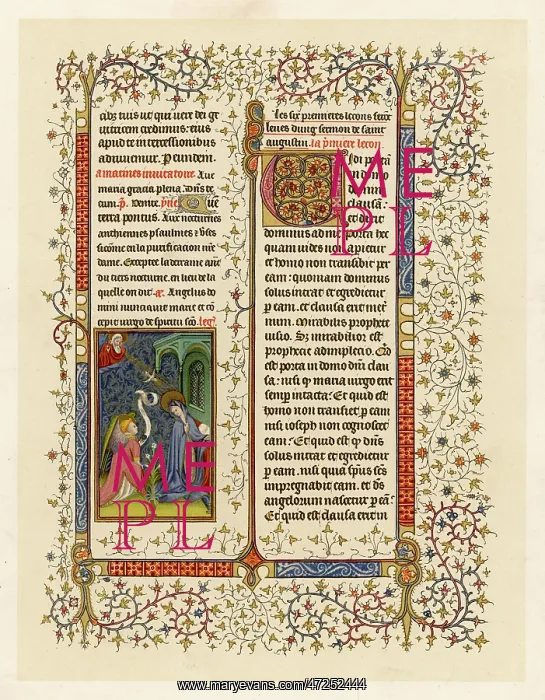 abs tuis ut qui vere dei ge
nitricem credimus: eius
apud te intercessionibus
adiuvemur. Per eundem.
A matines invitatoire. Ave
maria gracia plena. Dn̄s te
cum. p̄. Venite.
terra pontus. Aux nocturnes
anthiennes psaulmes
sicōme en la purification nr̄e
dame. Excepte la derraine
du tiers nocturne. en lieu de la
quelle on dit. Angelus do
mini nunciavit marie et cō
cepit
Les six premieres lecons
leues dung sermon de saint
augustin. la p̄miere lecon
domini
clausa.
dominus ad me porta hec
quam vides non aperietur
et homo non transibit per
eam: quoniam dominus
solus intrat et egredietur
p eam. et clausa erit
mum. Mirabilis prophete
visio. Sz mirabilior est
prophetie adimplecio. Qd
est porta in domo dn̄i clau
sa: nisi q maria virgo erit
semp intacta: Et quid est
homo non transiet p eam
nisi ioseph non cognoscet
eam: Et quid est q dn̄s
solus intrat et egredietur
p eam. nisi quia sp̄us sc̄s
impregnabit eam. et dn̄s
angelorum nascetur p eā:
Et quid est clausa erit in
ME
PL
ME
PL
www.maryevans.com/47252444